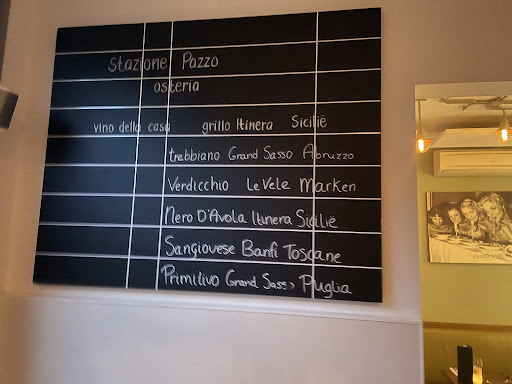 Stazione Pazzo
osteria
vino della casa grillo Itinera Sicilië
trebbiano Grand Sasso Abruzzo
Verdicchio Le Vele Marken
Nero D'Avola Itinera Sicilië
Sangiovese Banfi Toscane
Primitivo Grand Sasso Puglia